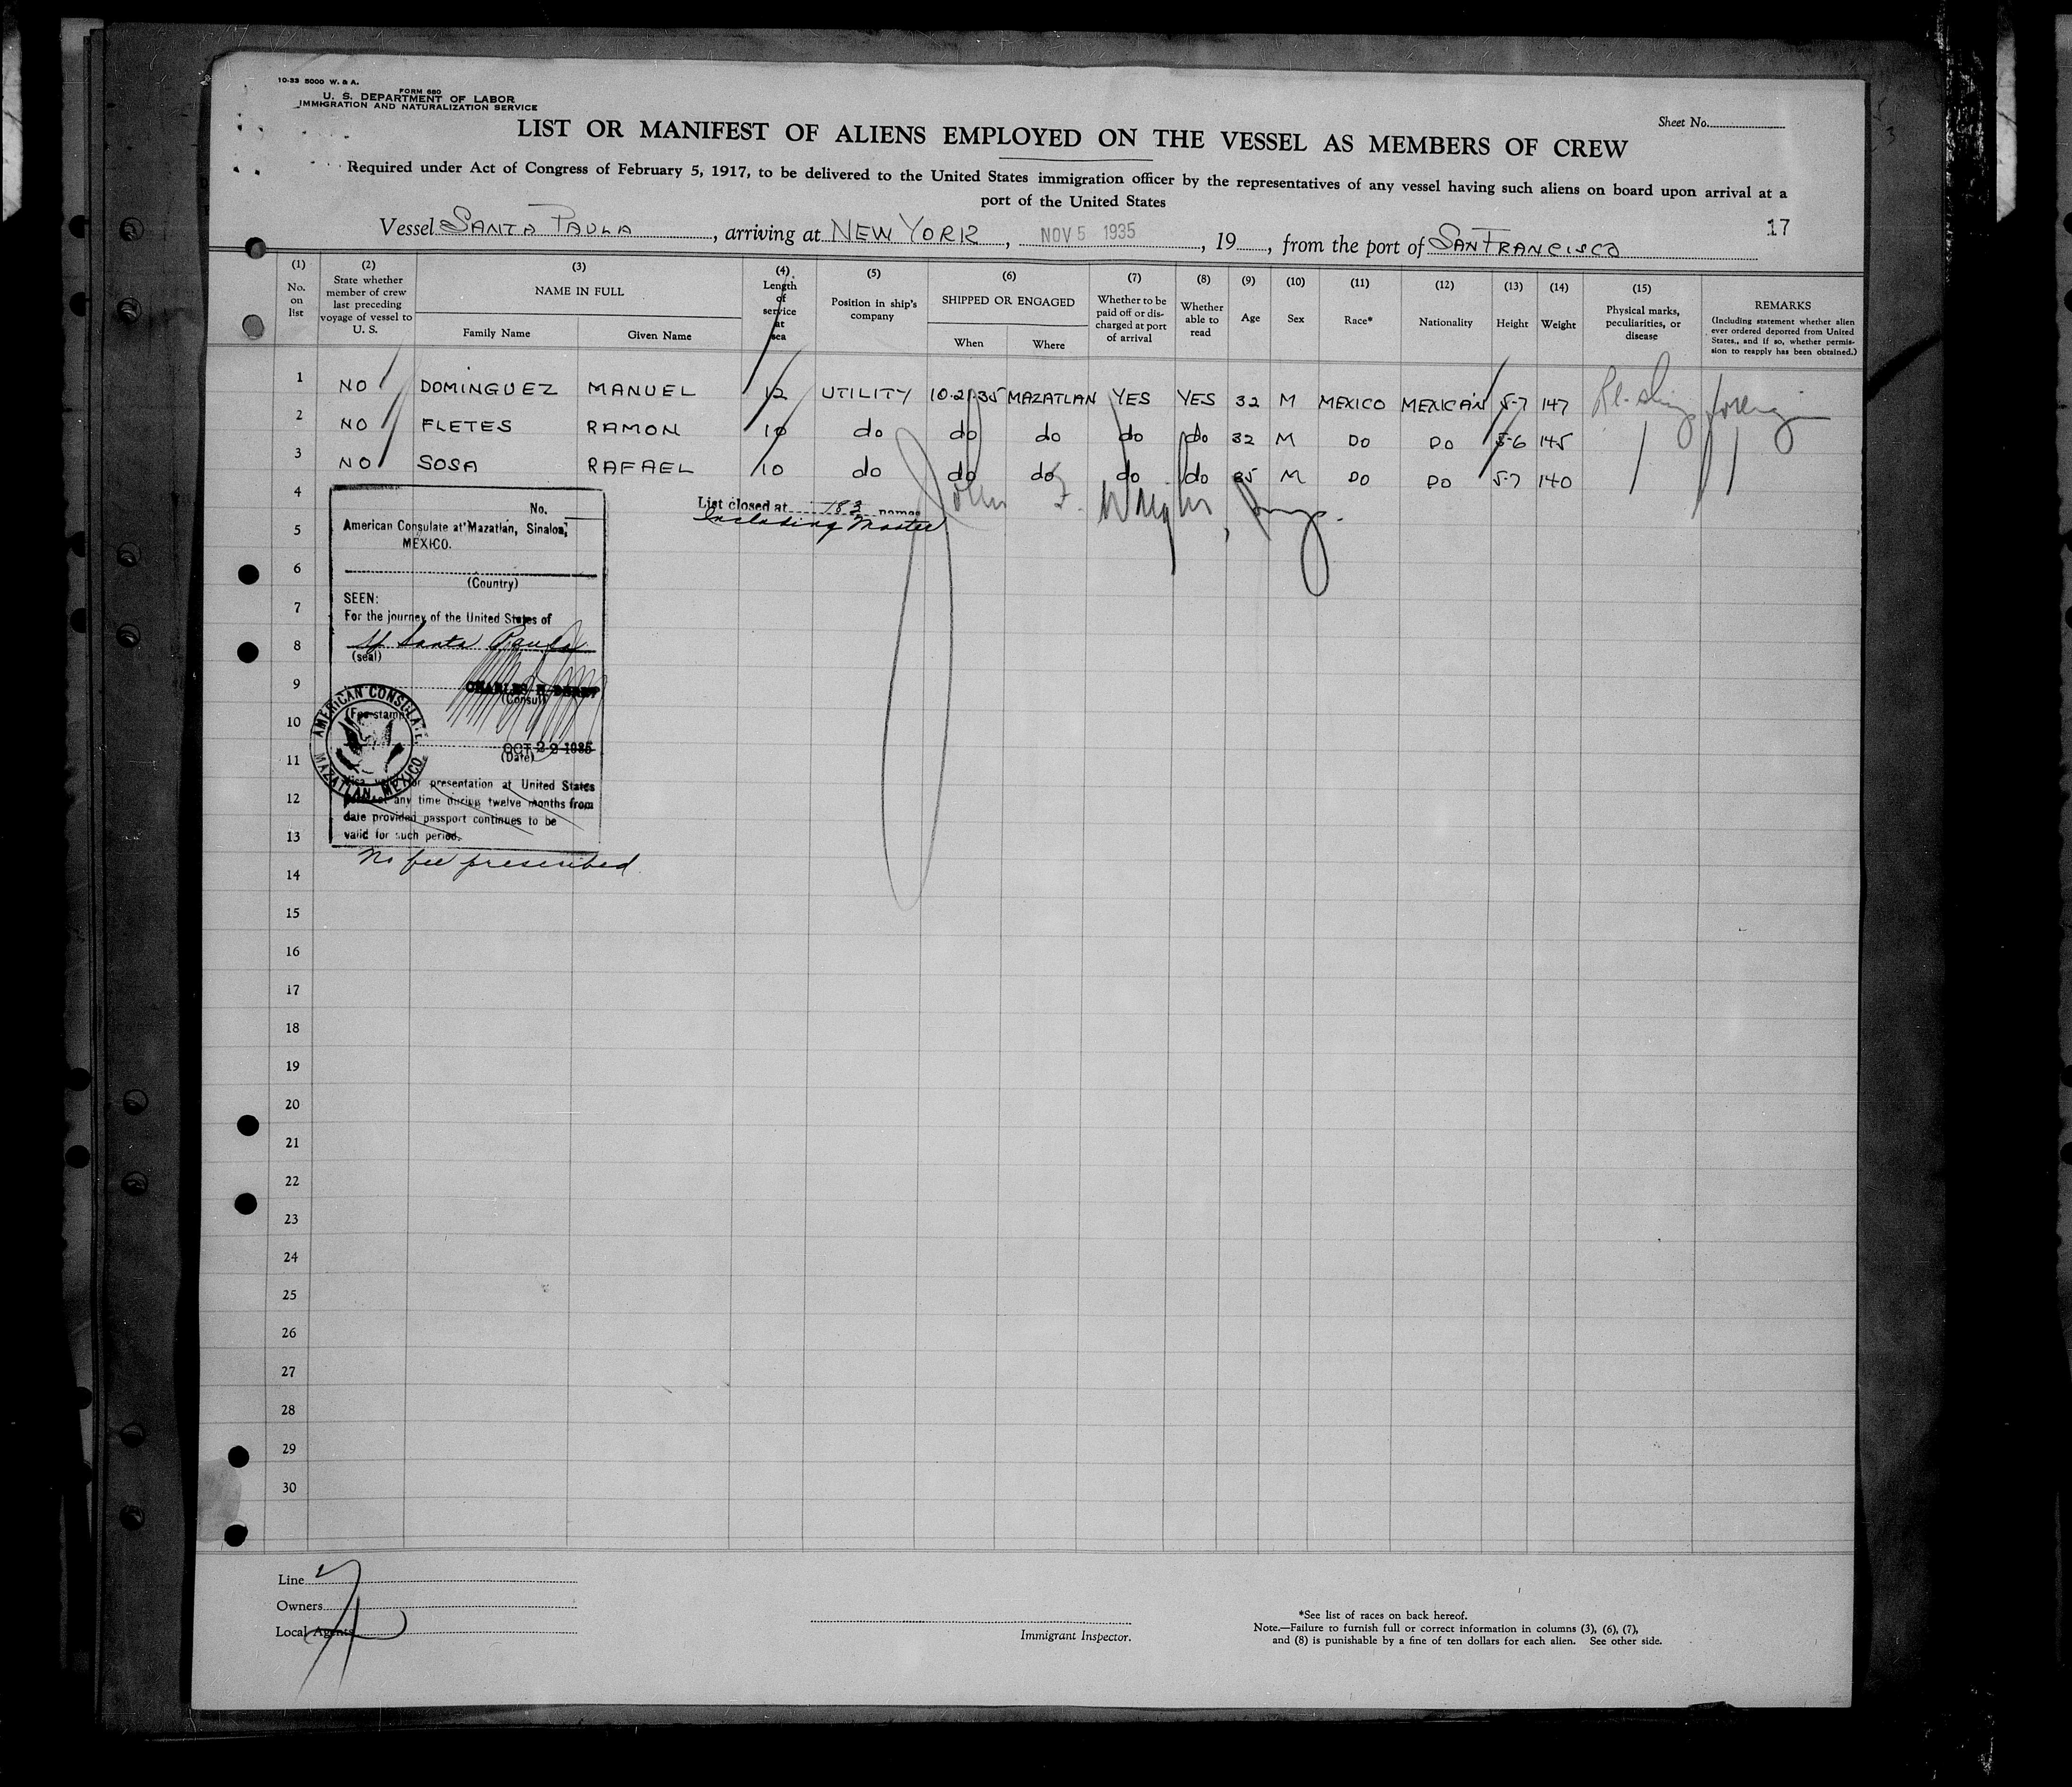 10-33 5000 W. & A.
FORM 680
U. S. DEPARTMENT OF LABOR
IMMIGRATION AND NATURALIZATION SERVICE
Sheet No.
LIST OR MANIFEST OF ALIENS EMPLOYED ON THE VESSEL AS MEMBERS OF CREW
Required under Act of Congress of February 5, 1917, to be delivered to the United States immigration officer by the representatives of any vessel having such aliens on board upon arrival at a
port of the United States
17
Vessel SANTA PAULA, arriving at NEW YORK, NOV 5 1935, 19, from the port of SAN FRANCISCO
(1) No. on list (2) State whether member of crew last preceding voyage of vessel to U. S. (3) NAME IN FULL Family Name Given Name (4) Length of service at sea (5) Position in ship's company (6) SHIPPED OR ENGAGED When Where (7) Whether to be paid off or discharged at port of arrival (8) Whether able to read (9) Age (10) Sex (11) Race* (12) Nationality (13) Height (14) Weight (15) Physical marks, peculiarities, or disease REMARKS (Including statement whether alien ever ordered deported from United States, and if so, whether permission to reapply has been obtained.)
1 NO DOMINGUEZ MANUEL 12 UTILITY 10-21-35 MAZATLAN YES YES 32 M MEXICO MEXICAN 5-7 147
2 NO FLETES RAMON 10 do do do do do 32 M DO DO 5-6 145
3 NO SOSA RAFAEL 10 do do do do do 35 M DO DO 5-7 140
4
List closed at 183 names
Including Master
John F. Wright, Insp.
No.
American Consulate at Mazatlán, Sinaloa,
MEXICO.
(Country)
SEEN:
For the journey of the United States of
Santa Paula
(seal)
CHARLES H. DERRY
(Consul)
(Fee stamp)
AMERICAN CONSULATE
MAZATLAN, MEXICO.
OCT 22 1935
(Date)
Visa valid for presentation at United States
ports at any time during twelve months from
date provided passport continues to be
valid for such period.
No fee prescribed
5
6
7
8
9
10
11
12
13
14
15
16
17
18
19
20
21
22
23
24
25
26
27
28
29
30
Line
Owners
Local Agents
Immigrant Inspector.
*See list of races on back hereof.
Note.—Failure to furnish full or correct information in columns (3), (6), (7),
and (8) is punishable by a fine of ten dollars for each alien. See other side.